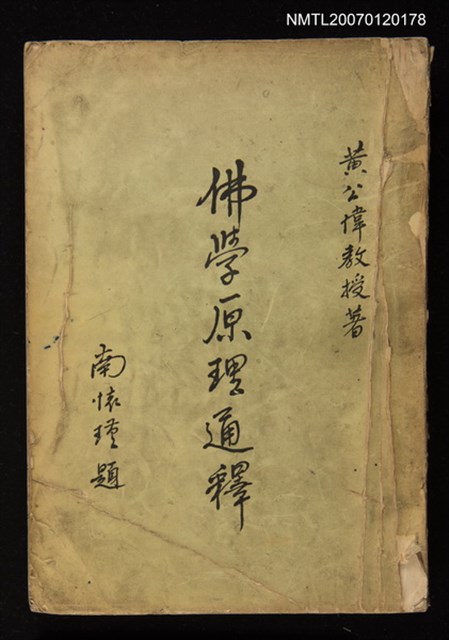 NMTL20070120178
黄公偉教授著
佛學原理通釋
南懷瑾題